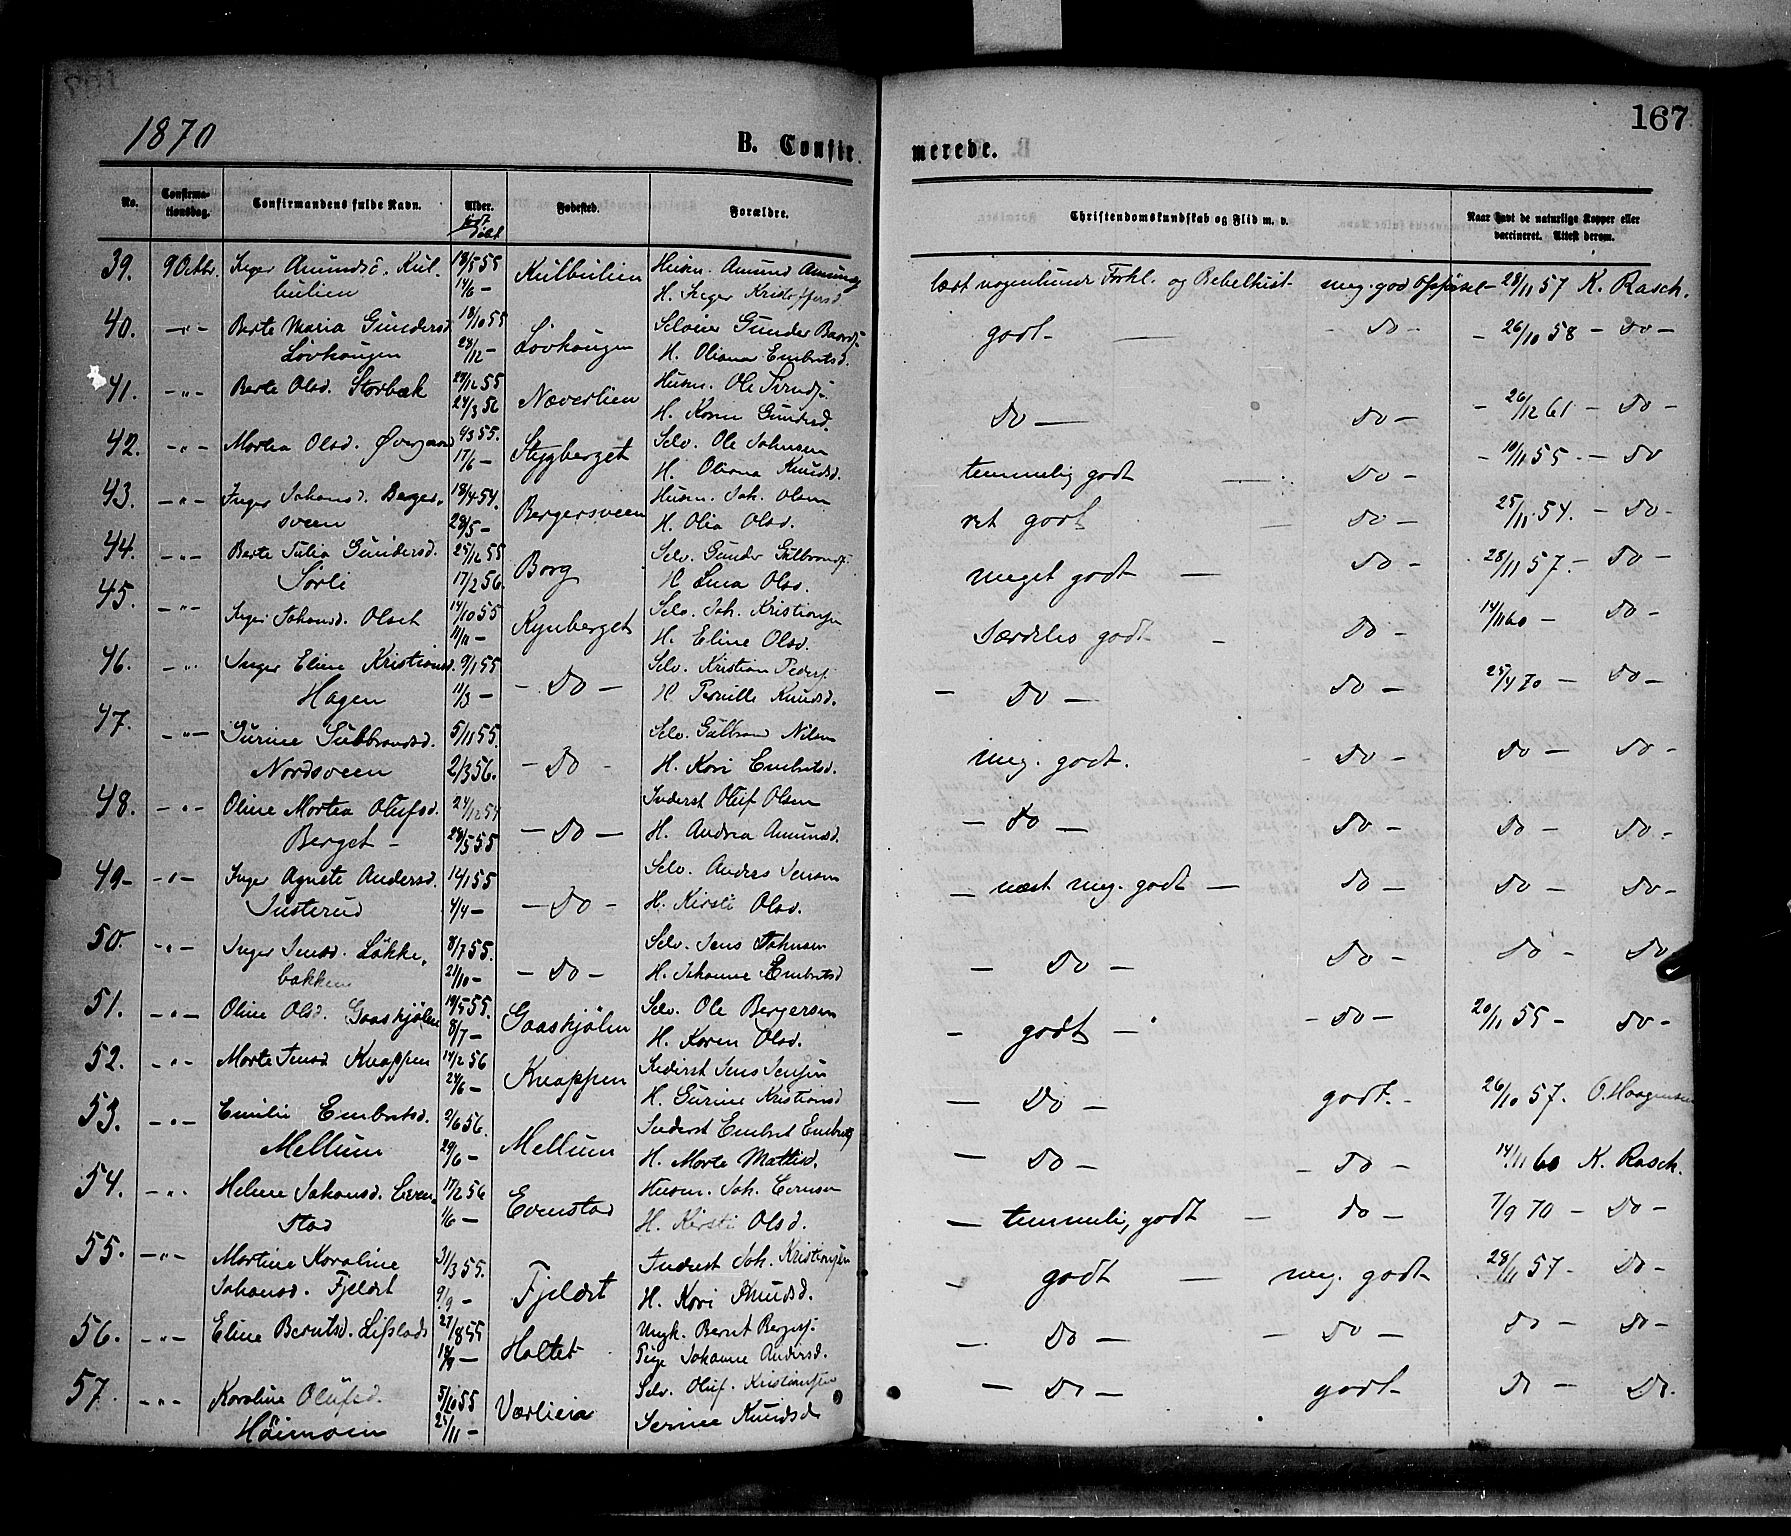 167
1870
B. Confir
merede.
No.
Confirma-
tionsdag.
Confirmandens fulde Navn.
Alder.
født
døbt
Fødested.
Forældre.
Christendomskundskab og Flid m. v.
Naar havt de naturlige Kopper eller
vaccineret. Attest derom.
39. 9 Octbr. Inger Amundsd. Kul- 18/5 55 Kulbulien Husm. Amund Amunds
bulien 14/6 — H. Inger Kristoffersd
læst nogenlunde Forkl. og Bibelhist. meg. god Opførsel — 28/11 57 K. Rasch.
40. — „ — Berte Maria Gundersd. 18/10 55 Løvhaugen Seloier Gunder Baards.
Løvhaugen 28/12 — H. Oliana Embretsd.
godt — Do — — 26/10 58 — Do —
41. — „ — Berte Olsd. Storbæk 29/12 55 Næverlien Husm. Ole
24/3 56 H. Karen Gundersd.
Do — Do — — 26/12 61 — Do —
42. — „ — Martea Olsd. Øvergaard 4/3 55. Stygberget Selv. Ole Johnsen
17/6 — H. Oliane Knudsd.
temmelig godt — Do — — 10/11 55. — Do
43. — „ — Inger Johansd. Berger- 18/4 54. Bergersveen Husm. Joh. Olsen
sveen 28/5 — H. Olia Olsd.
ret godt — Do — 25/11 54. — Do —
44. — „ — Berte Julia Gundersd. 25/12 55 Borg Selv. Gunder Gulbrands.
Sørli 17/2 56. H. Lina Olsd.
meget godt — Do — 28/11 57. — Do —
45. — „ — Inger Johansd. Olset 14/10 55 Kynberget Selv. Joh. Kristiansen
11/11 — H. Eline Olsd.
Særdeles godt — Do — 14/11 60 — Do —
46. — „ — Inger Eline Kristiansd. 9/1 55 — Do — Selv. Kristian Peders.
Hagen 11/3 — H. Pernille Knudsd.
— Do — Do — 25/4 70 — Do —
47. — „ — Gurine Gulbrandsd. 5/11 55. — Do — Selv. Gulbrand Nilsen
Nordsveen 2/3 56. H. Kari Embretsd.
meg. godt. — Do — Do — Do —
48. — „ — Oline Martea Olufsd. 24/12 54 — Do — Inderst Oluf Olsen
Berget — 28/5 55 H. Andrea Amundsd.
— Do — Do — Do — Do —
49 — — „ — Inger Agnete Andersd. 14/1 55 — Do — Selv. Anders Jensen
Justerud 4/4 — H. Kirsti Olsd.
— næst meg. godt — Do — Do — Do —
50. — „ — Inger Jensd. Løkke- 8/7 55. — Do — Selv. Jens Johnsen
bakken 21/10 — H. Johanne Embretsd
— Do — Do — Do — Do
51. — „ — Oline Olsd. Gaaskjølen 18/5 55. Gaaskjølen Selv. Ole Bergersen
8/7 — H. Karen Olsd.
— godt — — Do — 20/11 55 — Do —
52. — „ — Marte Jensd Knappen 14/2 56 Knappen Inderst Jens Jensen
24/6 — H. Gurine Kristiansd
— Do — godt. — 26/10 57. O. Haagensen
53. — „ — Emilie Embretsd. 2/6 56. Mellum Inderst Embret Embrets
Mellum 29/6 — H. Marte Mathisd.
— Do — — Do — 14/11 60 K. Rasch.
54. — „ — Helene Johansd. Even- 17/2 56 Evenstad Husm. Joh. Evensen
stad 1/6 — H. Kirsti Olsd.
— temmelig godt — Do — 7/9 70 — Do —
55. — „ — Martine Karoline 31/3 55. Fjeldset Inderst Joh. Kristiansen
Johansd. Fjeldset 9/9 — H. Kari Knudsd.
— godt — meg. godt — 28/11 57 — Do —
56. — „ — Eline Berntsd. 27/8 55 Holtet Ungk. Bernt Bergers.
18/9 — Pige Johanne Andersd.
— Do — — Do — Do — Do —
57. — „ — Karoline Olufsd. 5/10 55 Værlien Selv. Oluf Kristiansen
Høimoen 25/11 — Serine Knudsd
— Do — godt — Do — Do.